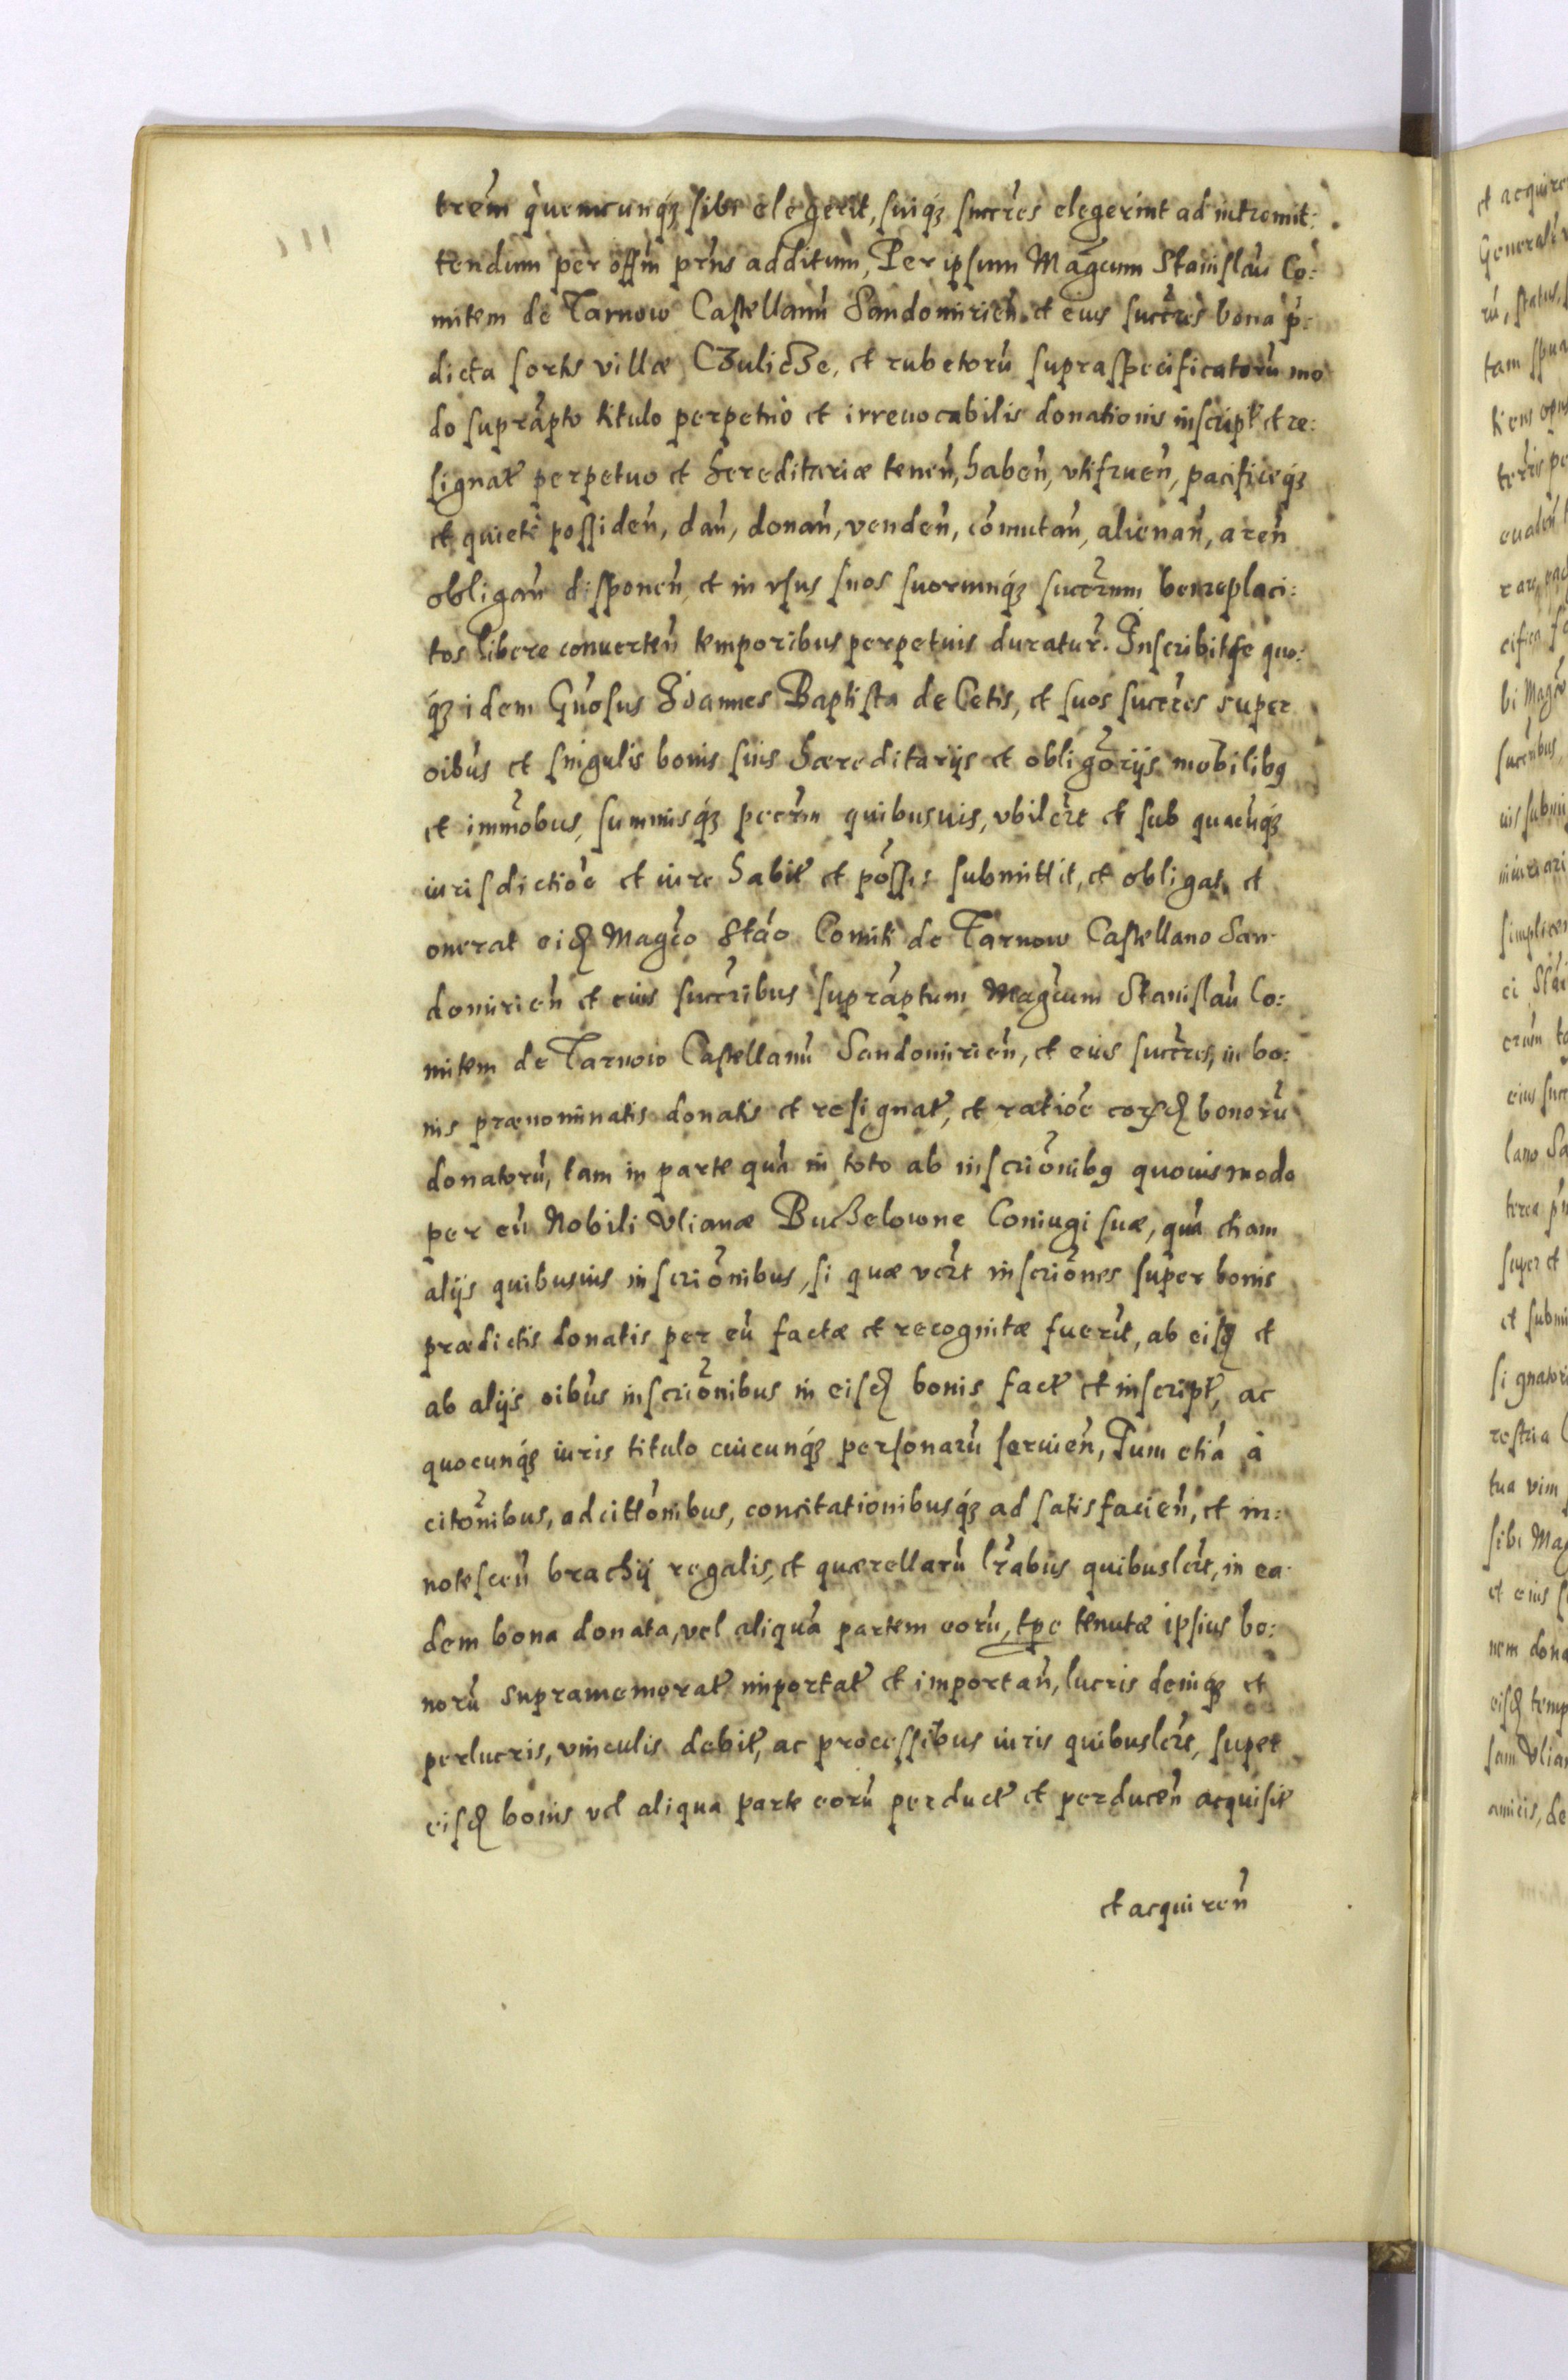 trem quemcunq́ꝫ sibi elegerit, suiq́ꝫ succr̃es elegerint ad intromit:
tendum per offm̃ prñs additum, Per ipsum Magcum Stanislau Co:
mitem de Tarnow Castellanũ Sandomirień et eius succr̃es bona p̃:
dicta sortis villæ Cʒulicʒe, et rubetorũ supraspecificatorũ mo
do suprãpto titulo perpetuò et irreuocabilis donationis inscript̃ et re:
signat̃ perpetuo et hereditariæ teneñ, habeñ, vtifrueñ, pacificeq́ꝫ
et quietè possideñ, dañ, donañ, vendeñ, com̃utañ, alienañ, areñ
obligañ disponeñ, et in vsus suos suorumq́ꝫ succr̃um beneplaci:
tos libere conuerteñ temporibus perpetuis duratur̃. Inscribitqe quo:
q́ꝫ idem Gñosus Ioannes Baptista de Cetis, et suos succr̃es super
oibũs et singulis bonis suis hæreditarijs et obligõrijs mobilibꝯ
et immõbus, summisq́ꝫ pecr̃m quibusuis, vbilr̃t et sub quacũq́ꝫ
iurisdictiõe et iure habit̃ et põsses submittit, et obligat, et
onerat eiꝗ Magc̃o Stão Comiti de Tarnow Castellano San-
domirień et eius succr̃ibus suprãptum Magcum Stanislaũ Co:
mitem de Tarnow Castellanũ Sandomirień, et eius succr̃es, in bo:
nis prænominatis donatis et resignat̃, et ratiõe eorꝗ bonorũ
donatorũ, tam in parte quã in toto ab inscriõnibꝯ quouis modo
per eũ Nobili Vlianæ Buchelowne Coniugi suæ, quã etiam
alijs quibusuis inscriõnibus, si quæ vcr̃t inscriõnes super bonis
prædictis donatis per eũ factæ et recognitæ fuerũt, ab eisꝗ et
ab alijs oibũs inscriõnibus in eisꝗ bonis fact̃ et inscript̃, ac
quocunq́ꝫ iuris titulo cuicunq́ꝫ personarũ seruieñ, Tum etiã à
citõnibus, adcittõnibus, concitationibusq́ꝫ ad satisfacieñ, et in:
notesceñ brachij regalis, et quærellarũ lr̃abus quibuslr̃t, in ea-
dem bona donata, vel aliquã partem eorũ, tp̃e tenutæ ipsius bo:
norũ supramemorat̃ importat̃ et importañ, lucris deniq́ꝫ et
perlucris, vinculis debit̃, ac processibus iuris quibuslr̃t, super
eisꝗ bonis vel aliqua parte eorũ perduct̃ et perduceñ acquisit̃
et acquireñ